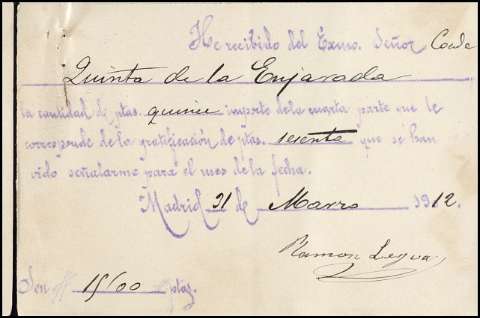 He recibido del Exmo. Señor Conde
Quinta de la Enjarada
la cantidad de ptas. quince importe de la cuarta parte que le
corresprude de la gratificación de ptas. sesenta que se han
vido señalarme para el mes de la fecha.
Madrid 31 de Marzo 1912.
Ramon Leyva
Son 15/00 ptas.